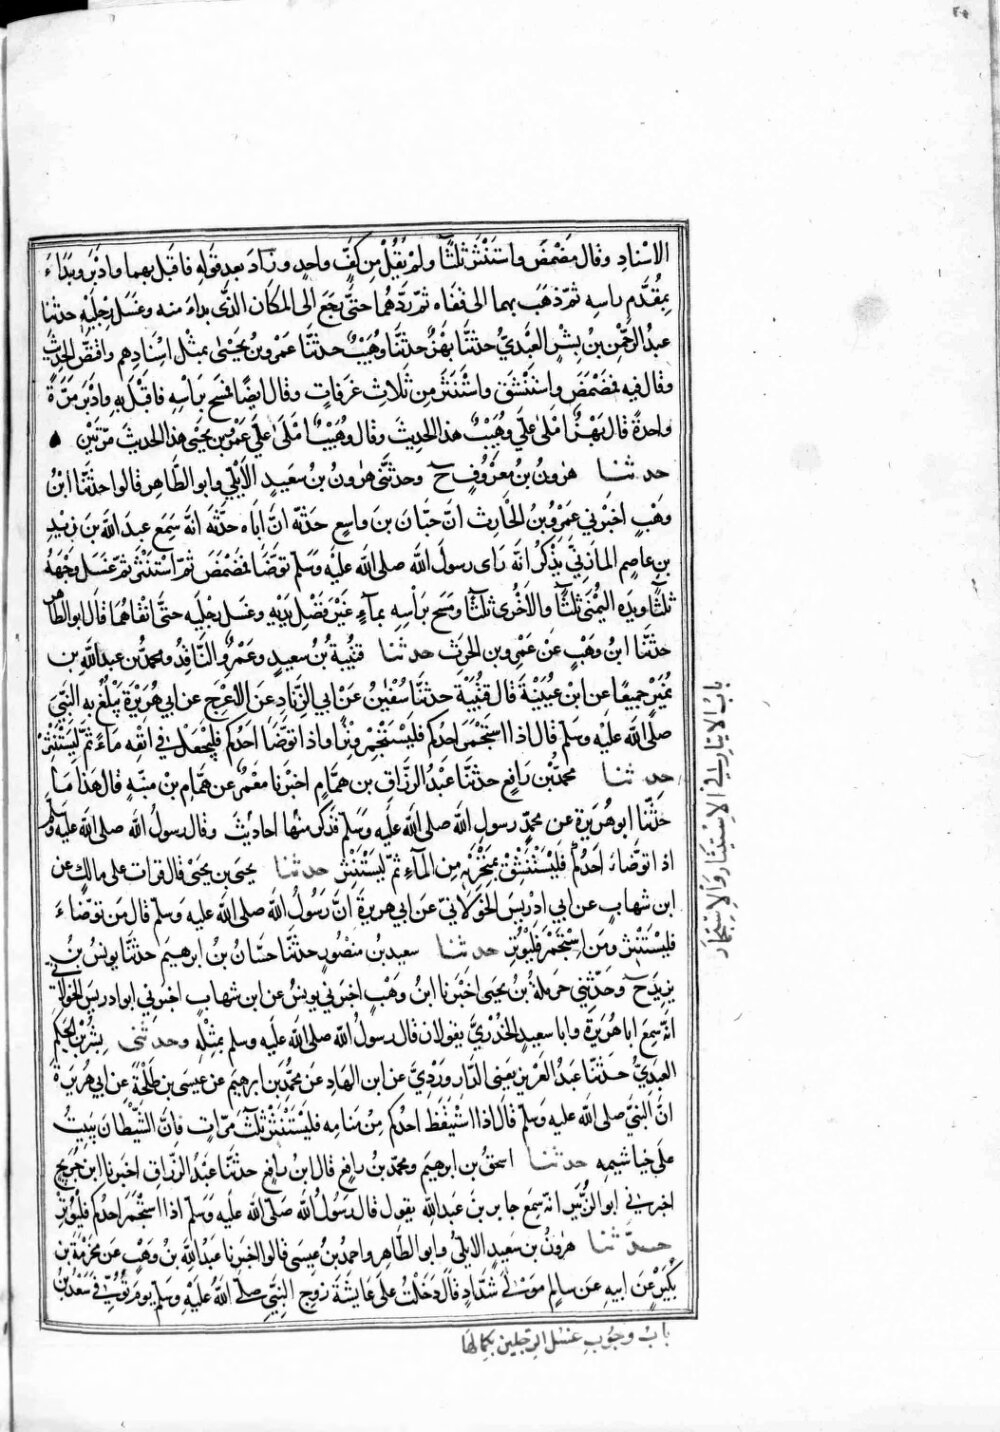 ٢٠
الاسْنادِ وقال مَضْمَضَ واستَنْثَرَ ثلٰثًا ولمْ يَقُلْ مِن كَفٍّ واحدٍ وزَادَ بعد قَولِهِ فاقبَل بهما وادْبَرَ وبَدَاءَ
بِمُقَدَّمِ راسِهِ ثمّ ذهَبَ بهما الى قَفَاه ثمّ رَدَّهُما حتّى رَجَعَ الى المكان الذى بداءَ منه وغسَل رِجْليْهِ حدثنا
عبدُ الرّحمٰن بن بِشْرٍ العَبْدِىُّ حدثَنَا بَهْزٌ حدثَنَا وُهَيْبٌ حدثَنَا عمرو بنُ يحيىٰ بمثْلِ اسْنَادِهم واقتَصَّ الحديثَ
وقال فيه فمَضْمَضَ واستَنْشَقَ واسْتَنْثَرَ مِن ثَلاثِ غَرَفاتٍ وقال ايضًا فمسَح بِرَأسِهِ فاقْبَلَ بهِ وادْبَرَ مَرَّةً
واحدةً قال بَهْزٌ امْلىٰ علَىَّ وُهَيْبٌ هذا الحديثَ وقال وُهَيْبٌ امْلىٰ علَىَّ عَمْرو بن يحيىٰ هذا الحديثَ مرّتَيْن
حدثنا هٰرونُ بنُ معْرُوفٍ ح وحدثَنى هٰرونُ بنُ سَعيدٍ الاَيْلىُّ وابو الطّاهِر قالوا حدثَنَا ابْنُ
وهْبٍ اخبَرَني عَمْرو بنُ الحَارِث انّ حَبّان بنَ واسِعٍ حَدّثَه انّ اباه حدّثَهُ انه سَمِعَ عبدَ الله بنَ زيْدِ
بنِ عاصِمٍ المازِنِيَّ يذْكُرُ انه رَاى رسولَ الله صلى الله عليْه وَسَلّم توَضّأ فمَضْمَضَ ثمّ اسْتَنْثَرَ ثمّ غسَل وَجْهَهُ
ثلٰثًا ويدَه اليُمْنى ثلٰثًا والاُخْرى ثلٰثًا ومسَح بِرَأسِهِ بمآءٍ غَيْرَ فَضْلِ يَدَيْهِ وغسَل رِجْليه حتى انْقاهُما قال ابو الطّاهِر
حدثَنَا ابنُ وهْبٍ عَن عَمْرِو بنِ الحٰرِث حدثنا قتَيْبةُ بنُ سعيدٍ وعمْرٌو النّاقِدُ ومحمدُ بن عبدِ اللهِ بنِ
نُمَيْرٍ جميعًا عن ابْنِ عُيَيْنةَ قال قُتَيْبَة حدثَنَا سُفْيٰنُ عَنْ ابي الزِّناد عن الاَعْرَج عن ابي هُرَيْرةَ يَبْلُغُ به النّبيَّ
صلى الله عليْه وسَلّم قال اذا اسْتَجْمَرَ احدُكم فليَسْتَجْمِرْ وِتْرًا واذا توَضّأ احدُكم فليَجْعلْ في انْفِه مَاءً ثمّ ليَسْتَنْثِرْ
حدثنا محمدُ بن رافعٍ حدثَنَا عبدُ الرزّاق بن همّامٍ اخبَرَنا مَعْمَرٌ عن همّام بن منبِّهٍ قال هذا مَا
حدّثَنَا ابو هُرَيرةَ عن محمّدٍ رسولِ الله صلى الله عليْه وَسَلّم فذكرَ منْها احاديْثَ وقال رسولُ الله صلى الله عليه وسَلّم
اذا توضّاءَ احَدُكُم فليَسْتَنْشِقْ بمنْخِرَيْهِ مِن المآءِ ثمّ ليَسْتَنْثِرْ حدثنا يحيىٰ بن يحيىٰ قال قرات على مالكٍ عن
ابن شهابٍ عن ابي ادْرِيسَ الخَولانيِّ عن ابي هريرةَ انّ رَسُولَ الله صلى الله عليه وسَلّم قال مَن توَضّاءَ
فليَسْتَنْثِرْ ومَن استَجْمَرَ فليُوتِرْ حدثنا سعيد بن منصُورٍ حدثَنا حسّانُ بن ابرهيم حدثَنا يونسُ بنُ
يزيدَ ح وحدّثني حرملةُ بنُ يحيىٰ اخبَرنا ابنُ وهْبٍ اخبَرَني يونسُ عن ابن شهابٍ اخبَرني ابو ادريسَ الخَولانِيُّ
انه سمِعَ ابا هُريرةَ وابا سعيدٍ الخُدْرِيَّ يقولان قال رسولُ الله صلى الله عليه وسلم بمثلِهِ وحدثنى بِشْرُ بنُ الحَكمِ
العبدِيُّ حدثَنا عبدُ العَزيز يَعْني الدَّراوَرْدِيَّ عن ابن الهاد عن محمّد بن ابرهيمَ عن عيسَى بن طَلْحَةَ عن ابي هُرَيرةَ
انّ النبيَّ صلى الله عليه وسلّم قال اذا اسْتيْقَظَ احدُكم مِنْ منَامِه فليَسْتَنْثِرْ ثلٰثَ مرّاتٍ فانّ الشَّيْطان يَبِيتُ
على خياشيمِهِ حدثنا اسحٰقُ بن ابرهيم ومحمدُ بن رافعٍ قال ابن رافعٍ حدثَنا عبْدُ الرزّاق اخبرنا ابن جُرَيجٍ
اخبرني ابو الزُّبَير انه سمِعَ جابرَ بنَ عبدِ الله يقول قال رَسُولُ الله صَلّى الله عليه وَسَلّم اذا اسْتجْمَرَ احدُكم فليُوتِرْ
حدّثنا هٰرونُ بن سَعيدٍ الايليُّ وابو الطّاهِر واحمدُ بن عيسَى قالوا اخبَرنا عبدُ الله بنُ وَهْبٍ عن مَخْرَمَةَ بن
بُكَيْرٍ عن ابيه عن سالمٍ مولى شدّادٍ قال دخَلْتُ على عايشةَ زوجِ النبِيِّ صلى اللهُ عليْه وسَلّم يومَ تُوُفّيَ سَعْدُ بْنُ
بابُ الايتارِ في الاِسْتِنثارِ وَالاِسْتِجمَار
بابُ وجُوبِ غسْلِ الرِجلين بكمالِها